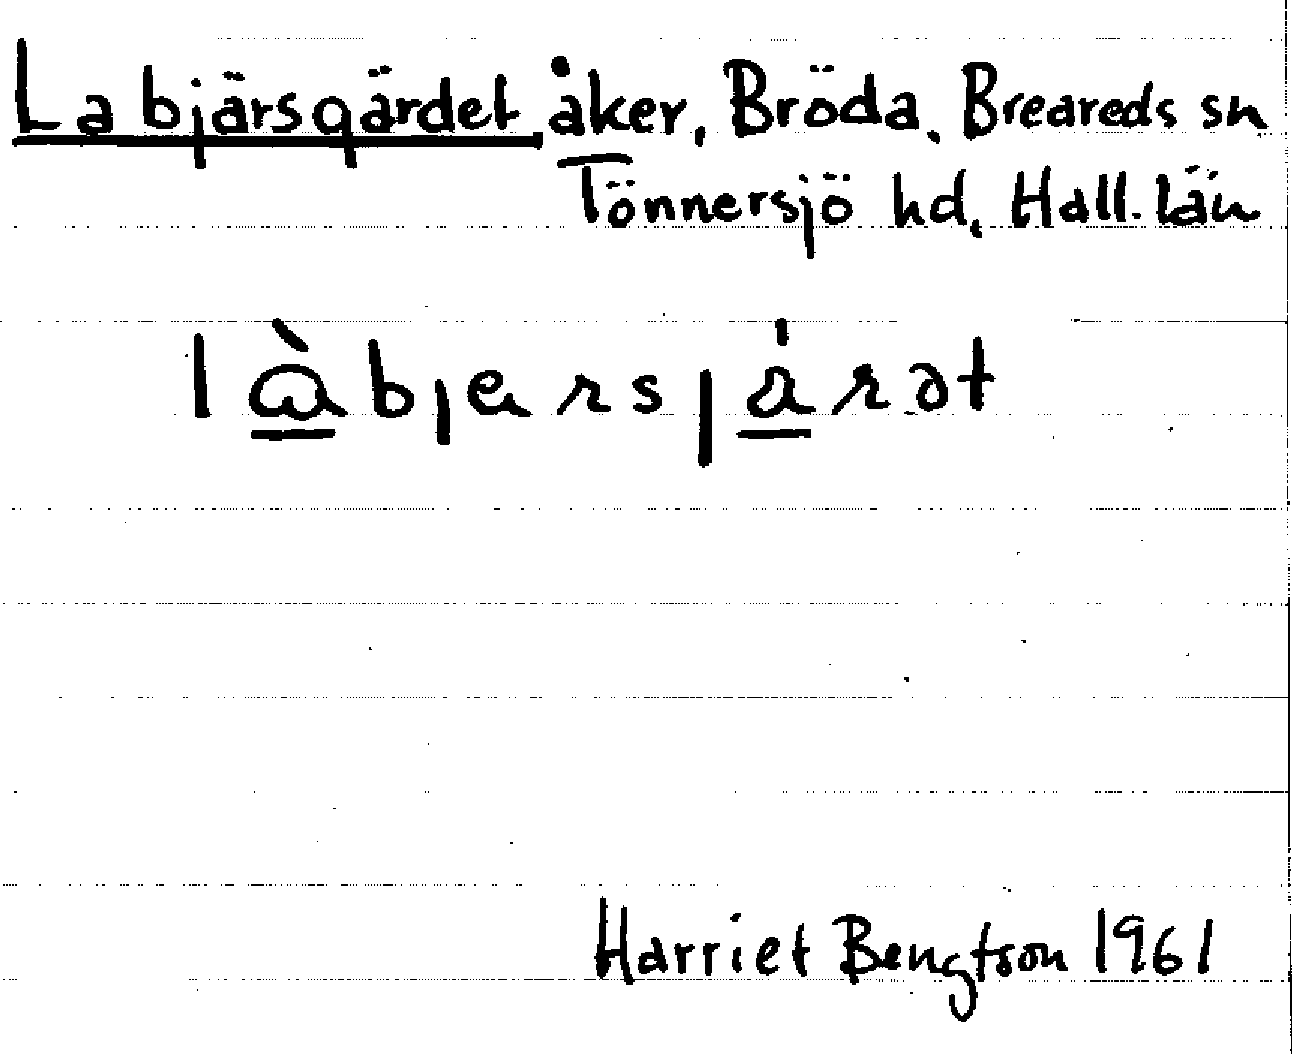 Labjärsgärdet åker, Bröda, Breareds sn
Tönnersjö hd, Hall. län
là̱bjersjá̱rət
Harriet Bengtson 1961